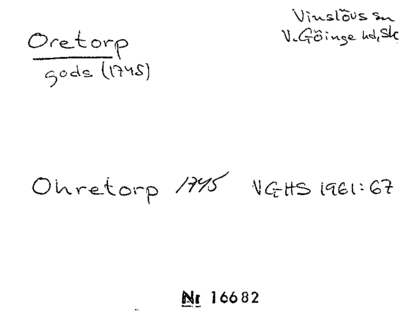 Oretorp
gods (1745)
Vinslövs sn
V. Göinge hd, Sk
Ohretorp 1745 VGHS 1961:67
Nr 16682